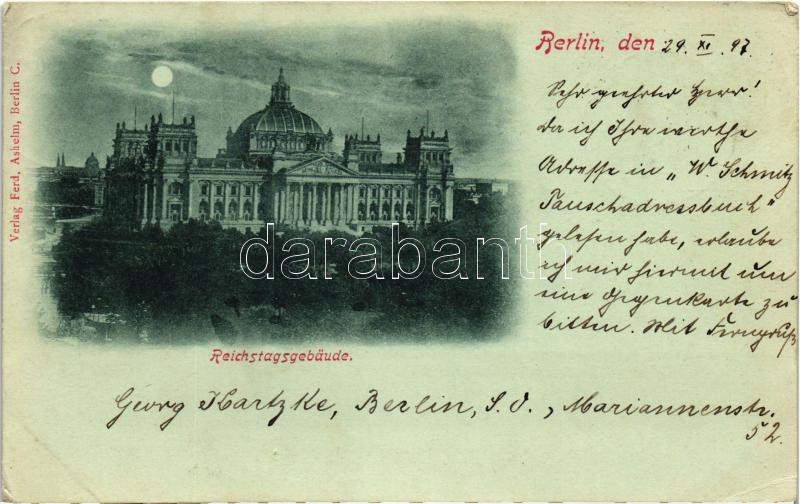 Berlin, den 29. XI. 97.
Sehr geehrter Herr!
Da ich Ihre werthe
Adresse in „W. Schmitz
Tauschadressbuch“
gelesen habe, erlaube
ich mir hiermit um
eine Gegenkarte zu
bitten. Mit Ferngruß
Verlag Ferd. Ashelm, Berlin C.
darabanth
Reichstagsgebäude.
Georg Hartzke, Berlin, S. O., Mariannenstr.
52.